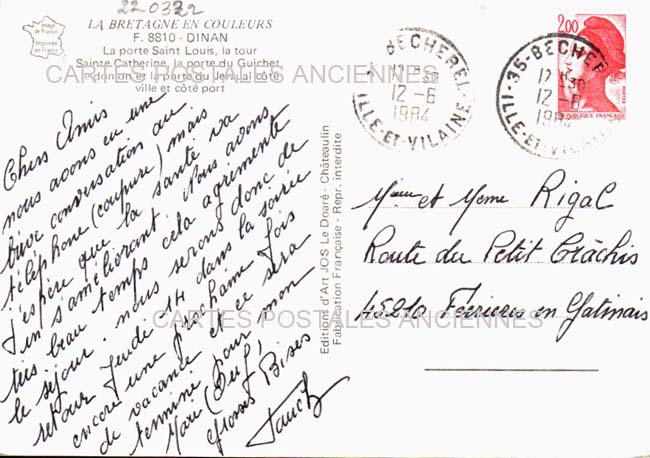 22-0322
Image de France
Imprimée en France
LA BRETAGNE EN COULEURS
F. 8810 - DINAN
La porte Saint Louis, la tour
Sainte Catherine, la porte du Guichet
le donjon et la porte du Jerzual côté
ville et côté port
CARTES POSTALES ANCIENNES
Chers Amis
nous avons eu une
brève conversation au
téléphone (coupure) mais
j'espère que la santé va
en s'améliorant. Nous avons
très beau temps cela agrémente
le séjour. nous serons donc de
retour Jeudi 14 dans la soirée
encore une prochaine fois
de vacance et ce sera
terminé pour mon
Mari (Ouf)
Grosses Bises
Editions d'Art JOS Le Doaré - Châteaulin
Fabrication Française - Repr. interdite
BECHEREL
12-6
1984
ILLE-ET-VILAINE
35-BECHEREL
12H30
12-6
1984
ILLE-ET-VILAINE
2,00
REPUBLIQUE FRANÇAISE
Mme et Mme Rigal
Route du Petit Crâchis
45210 Ferrières en Gatinais
CARTES POSTALES ANCIENNES